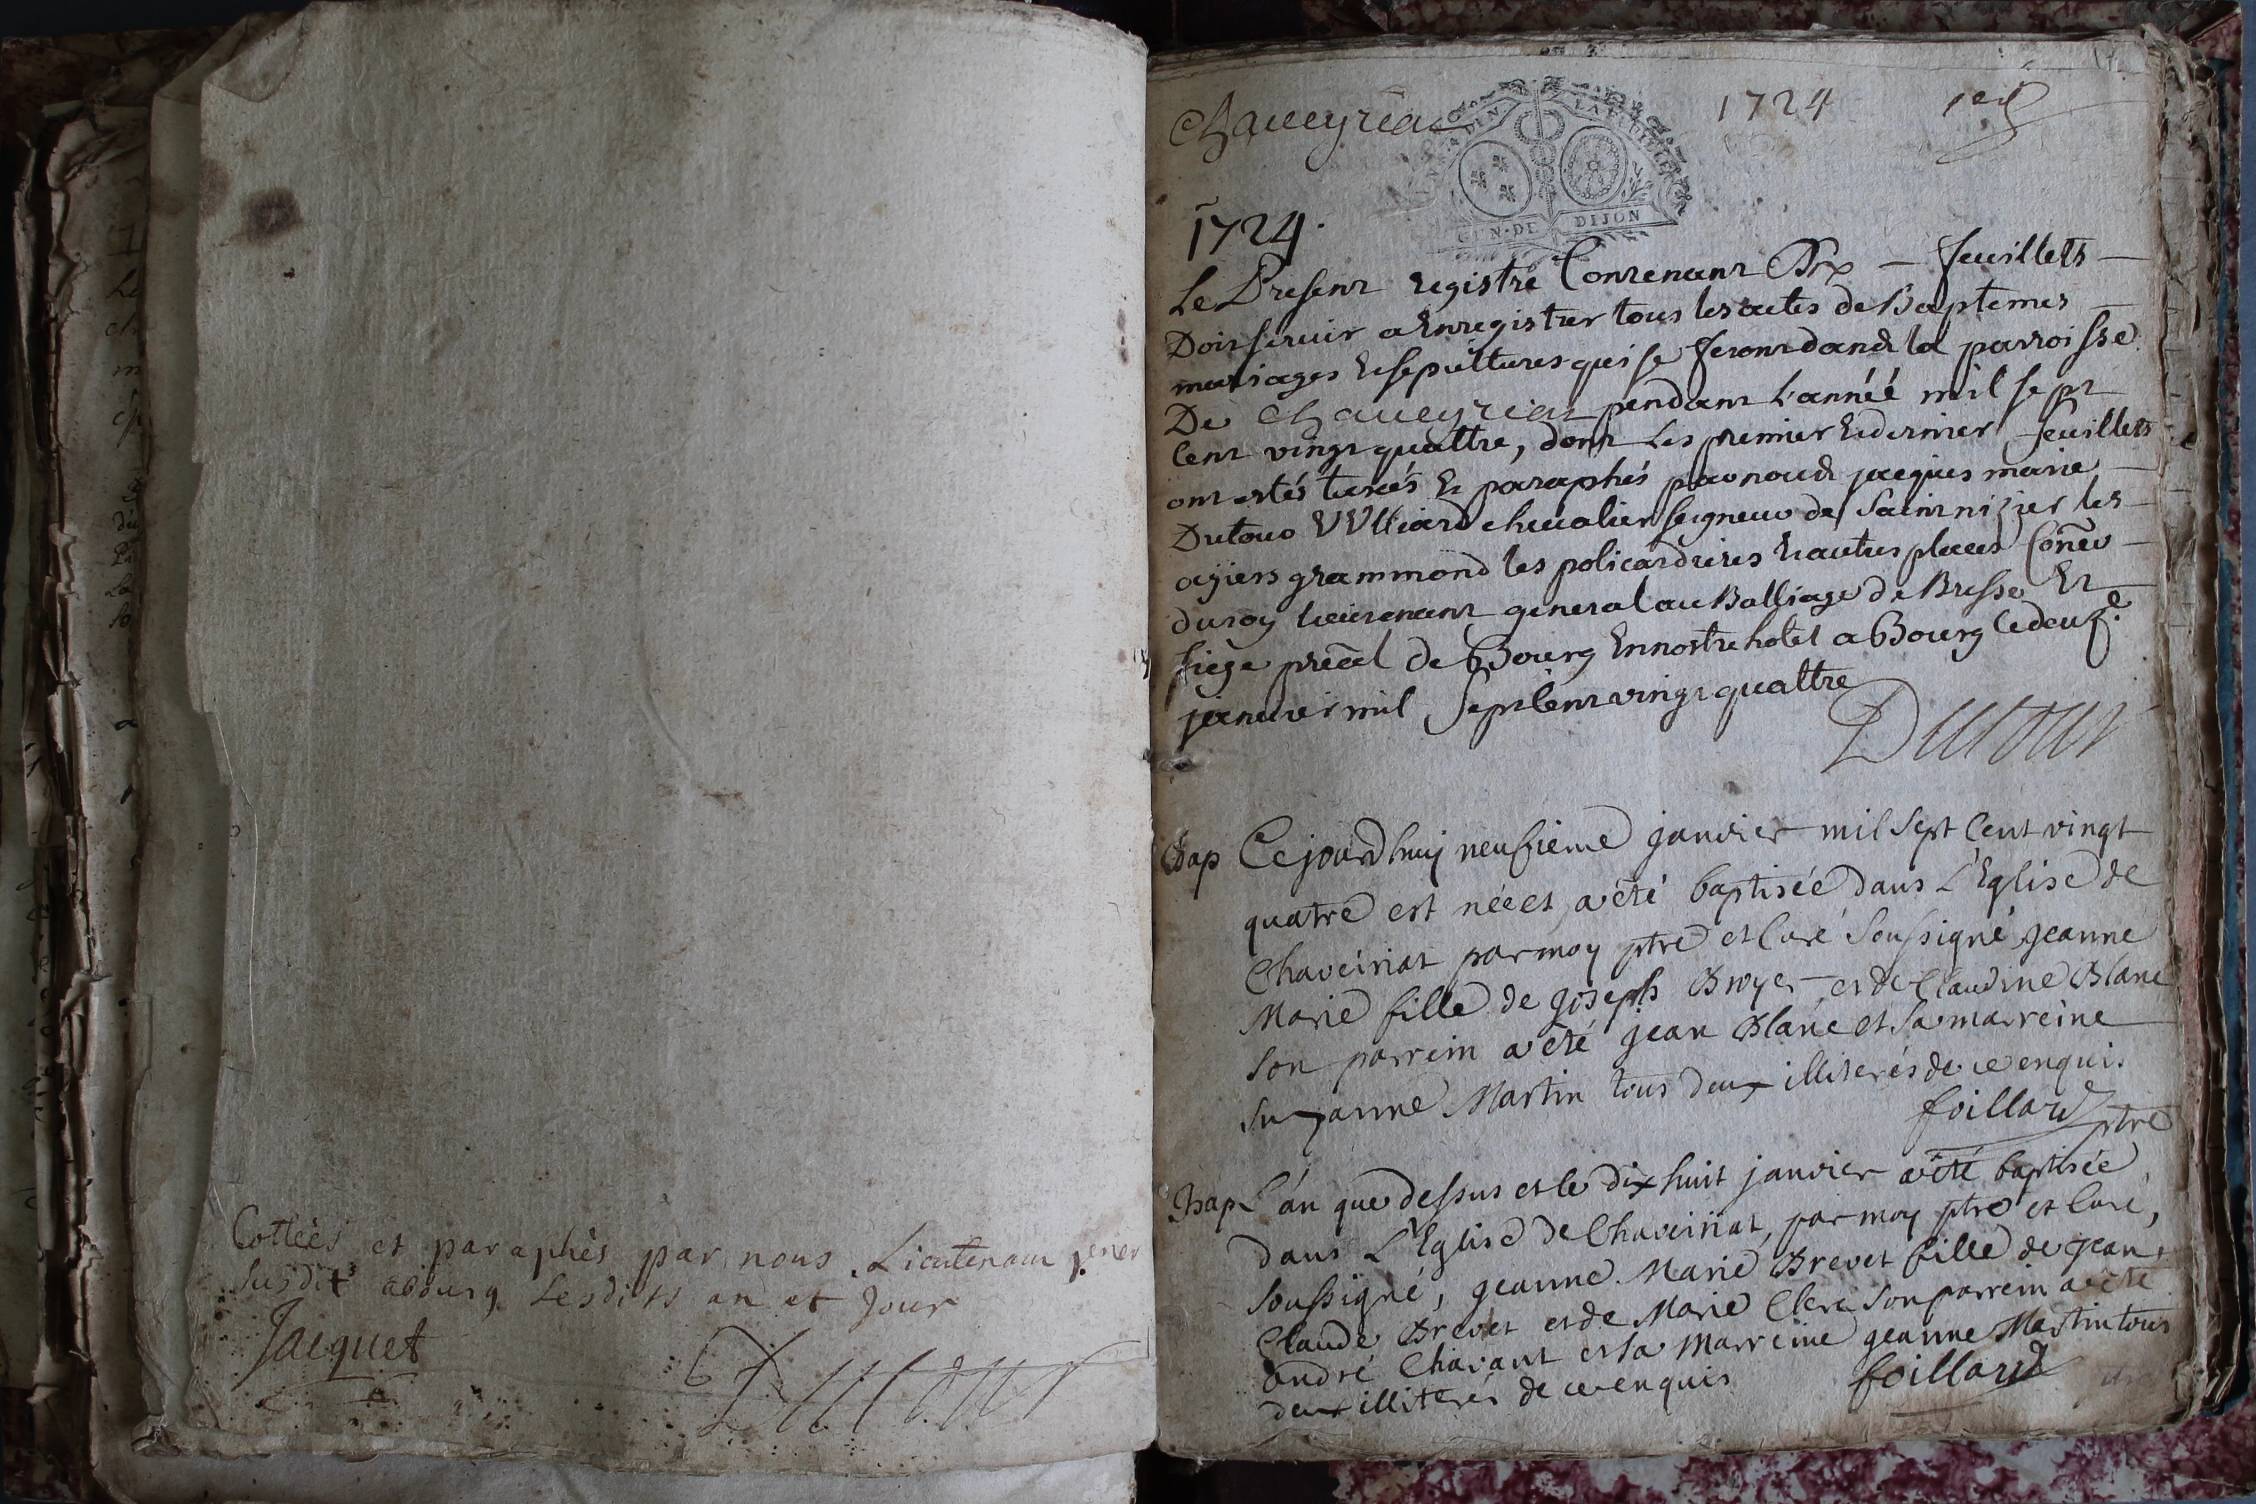 Cottéés et paraphés par nous Lieutenant gener
susdit abourg Lesdits an et Jour
Jacquet
Dutour
Chaveyriat
1724
1er
GEN·DE DIJON
1724.
Le Present registre Contenant Dix feuillets
Doit servir a Enregistrer tous les actes de Baptemes
mariages Et sepultures qui se feront dans la parroisse
De Chaveyriat pendant L'année mil sept
Cent vingt quattre, dont Les premier Et dernier feuillets
ont estés cottés Et paraphés par nous jacques marie
Dutour VVlliard chevalier seigneur de Saint nizier les
ayiers grammond les policardieres Et autres places Coner
du roy lieutenant general au Balliage de Bresse Et
siege preâl de Bourg En nostre hotel a Bourg le deuxe
janvier mil Sept Cent vingt quattre
Dutour
Bap Cejourdhuy neufieme janvier mil sept Cent vingt
quatre est néeet a été baptisée dans L'Eglise de
Chaveiriat par moy ptre et Curé Soussigné jeanne
Marie fille de joseph Broyer et de Claudine Blanc
Son parrein a été jean Blanc et Sa marreine
Suzanne Martin tous deux illiterés de ce enquis.
foillard ptre
Bap L'an que dessus et le dix huit janvier a été baptisée
dans L'Eglise de Chaveiriat, par moy ptre et Curé,
Soussigné, jeanne Marie Brevet fille de jean
Claude Brevet et de Marie Clerc Son parrein a été
andré Chavant et Sa Marreine jeanne Martin tous
deux illiterés de ce enquis
foillard